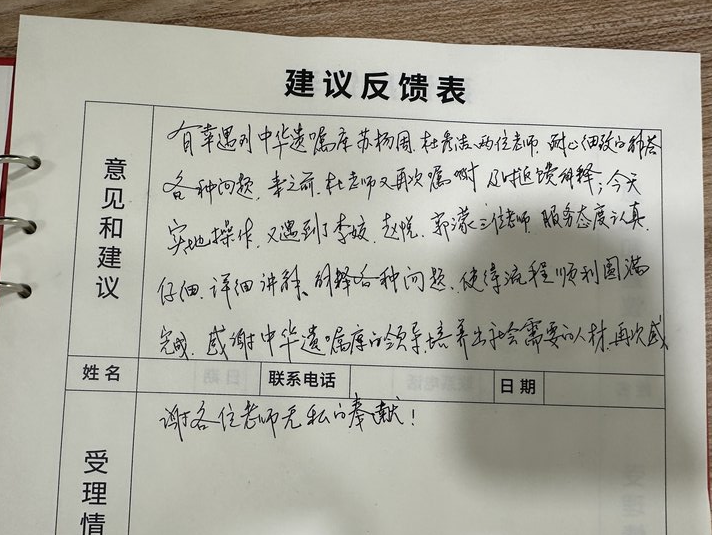 建议反馈表
意见和建议
有幸遇到中华遗嘱库苏杨周、杜彦洁两位老师、耐心细致的解答
各种问题，来之前，杜老师又再次嘱咐及时反馈解释；今天
实地操作，又遇到了李姣、赵悦、郭濛三位老师服务态度认真、
仔细、详细讲解、解释各种问题、使得流程顺利圆满
完成，感谢中华遗嘱库的领导培养出社会需要的人材，再次感
姓名
联系电话
日期
谢各位老师无私的奉献！
受理情